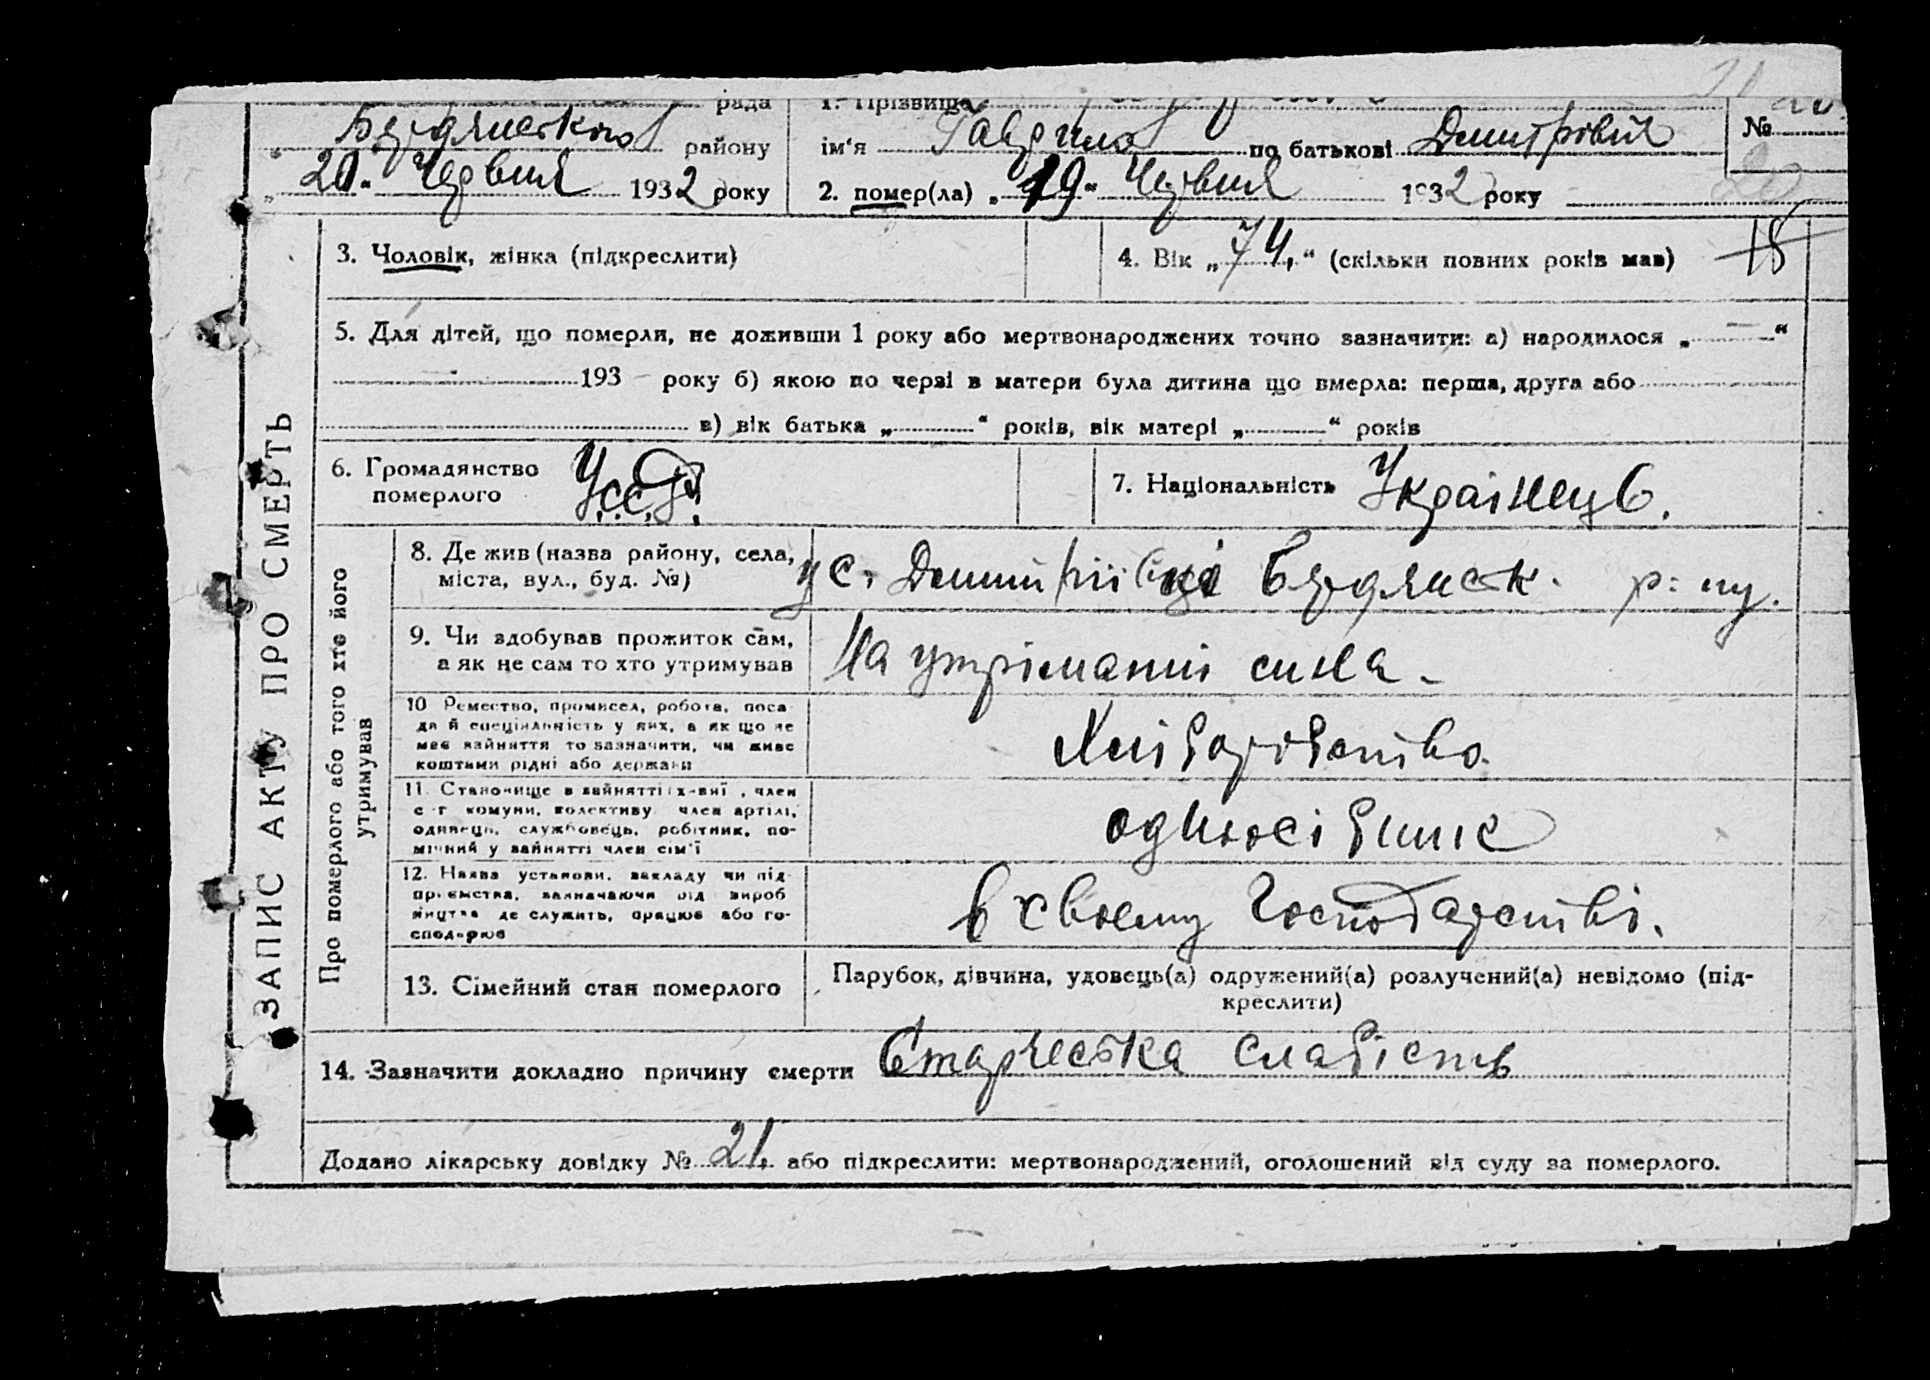 рада 1. Прізвище
Бердянського району ім'я Гаврило по батькові Дмитрович №
„20“ Червня 1932 року 2. помер(ла) „19“ Червня 1932 року 20
3. Чоловік, жінка (підкреслити) 4. Вік „74.“ (скільки повних років мав) 18
5. Для дітей, що померли, не доживши 1 року або мертвонароджених точно зазначити: а) народилося „ — “
193 — року б) якою по черзі в матери була дитина що вмерла: перша, друга або
в) вік батька „ “ років, вік матері „ “ років
6. Громадянство
померлого
У.С.С.Р.
7. Національність Українець.
ЗАПИС АКТУ ПРО СМЕРТЬ
Про померлого або того хто його
утримував
8. Де жив (назва району, села,
міста, вул., буд. №)
у с. Дмитріївці Бердянск. р-ну.
9. Чи здобував прожиток сам,
а як не сам то хто утримував
На утріманні сина -
10 Ремество, промисел, робота, поса-
да й специіяльність у них, а як що не
має зайняття то зазначити, чи живе
коштами рідні або держави
Хліборобство.
11. Становище в зайнятті
с-г комуни, колективу член артілі,
одинець, службовець, робітник, по-
мічний у зайнятті член сім'ї
одноосібник
12. Назва установи, закладу чи під-
приємства, зазначаючи від вироб
ництва де служить, працює або го-
сподарює
в своему Господарстві.
13. Сімейний стан померлого
Парубок, дівчина, удовець(а) одружений(а) розлучений(а) невідомо (під-
креслити)
14. Зазначити докладно причину смерти Старческа слабість
Додано лікарську довідку № 21. або підкреслити: мертвонароджений, оголошений від суду за померлого.